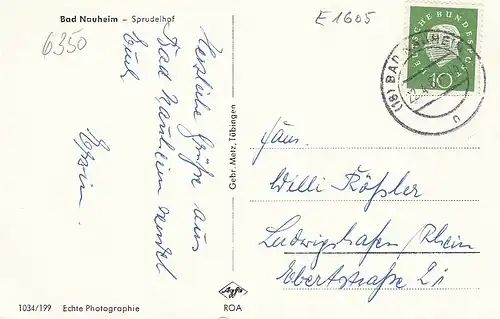 Bad Nauheim – Sprudelhof
6350
E 1605
DEUTSCHE BUNDESPOST
10
(16) BAD NAUHEIM
Herzliche Grüße aus
Bad Nauheim sendet
Euch
Gebr. Metz, Tübingen
Fam.
Willi Rößler
Ludwigshafen/Rhein
Ebertstraße 21
1034/199 Echte Photographie
Agfa
ROA